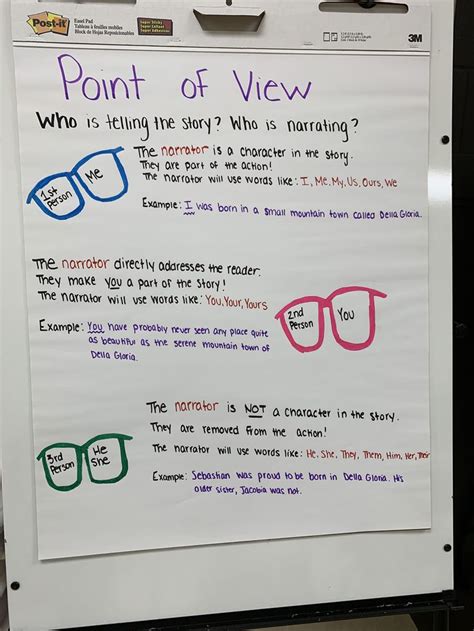 Post-it
Easel Pad
Tableau à feuilles mobiles
Bloc de Hojas Reposicionables
Super Sticky
Super Adhesivas
3M
Point of View
Who is telling the story? Who is narrating?
1st Person
Me
The narrator is a character in the story.
They are part of the action!
The narrator will use words like: I, Me, My, Us, Ours, We
Example: I was born in a small mountain town called Della Gloria.
The narrator directly addresses the reader.
They make you a part of the story!
The narrator will use words like: You, Your, Yours
Example: You have probably never seen any place quite
as beautiful as the serene mountain town of
Della Gloria.
2nd Person
You
The narrator is NOT a character in the story.
They are removed from the action!
The narrator will use words like: He, She, They, Them, Him, Her, Their
Example: Sebastian was proud to be born in Della Gloria. His
older sister, Jacobia was not.
3rd Person
He
She